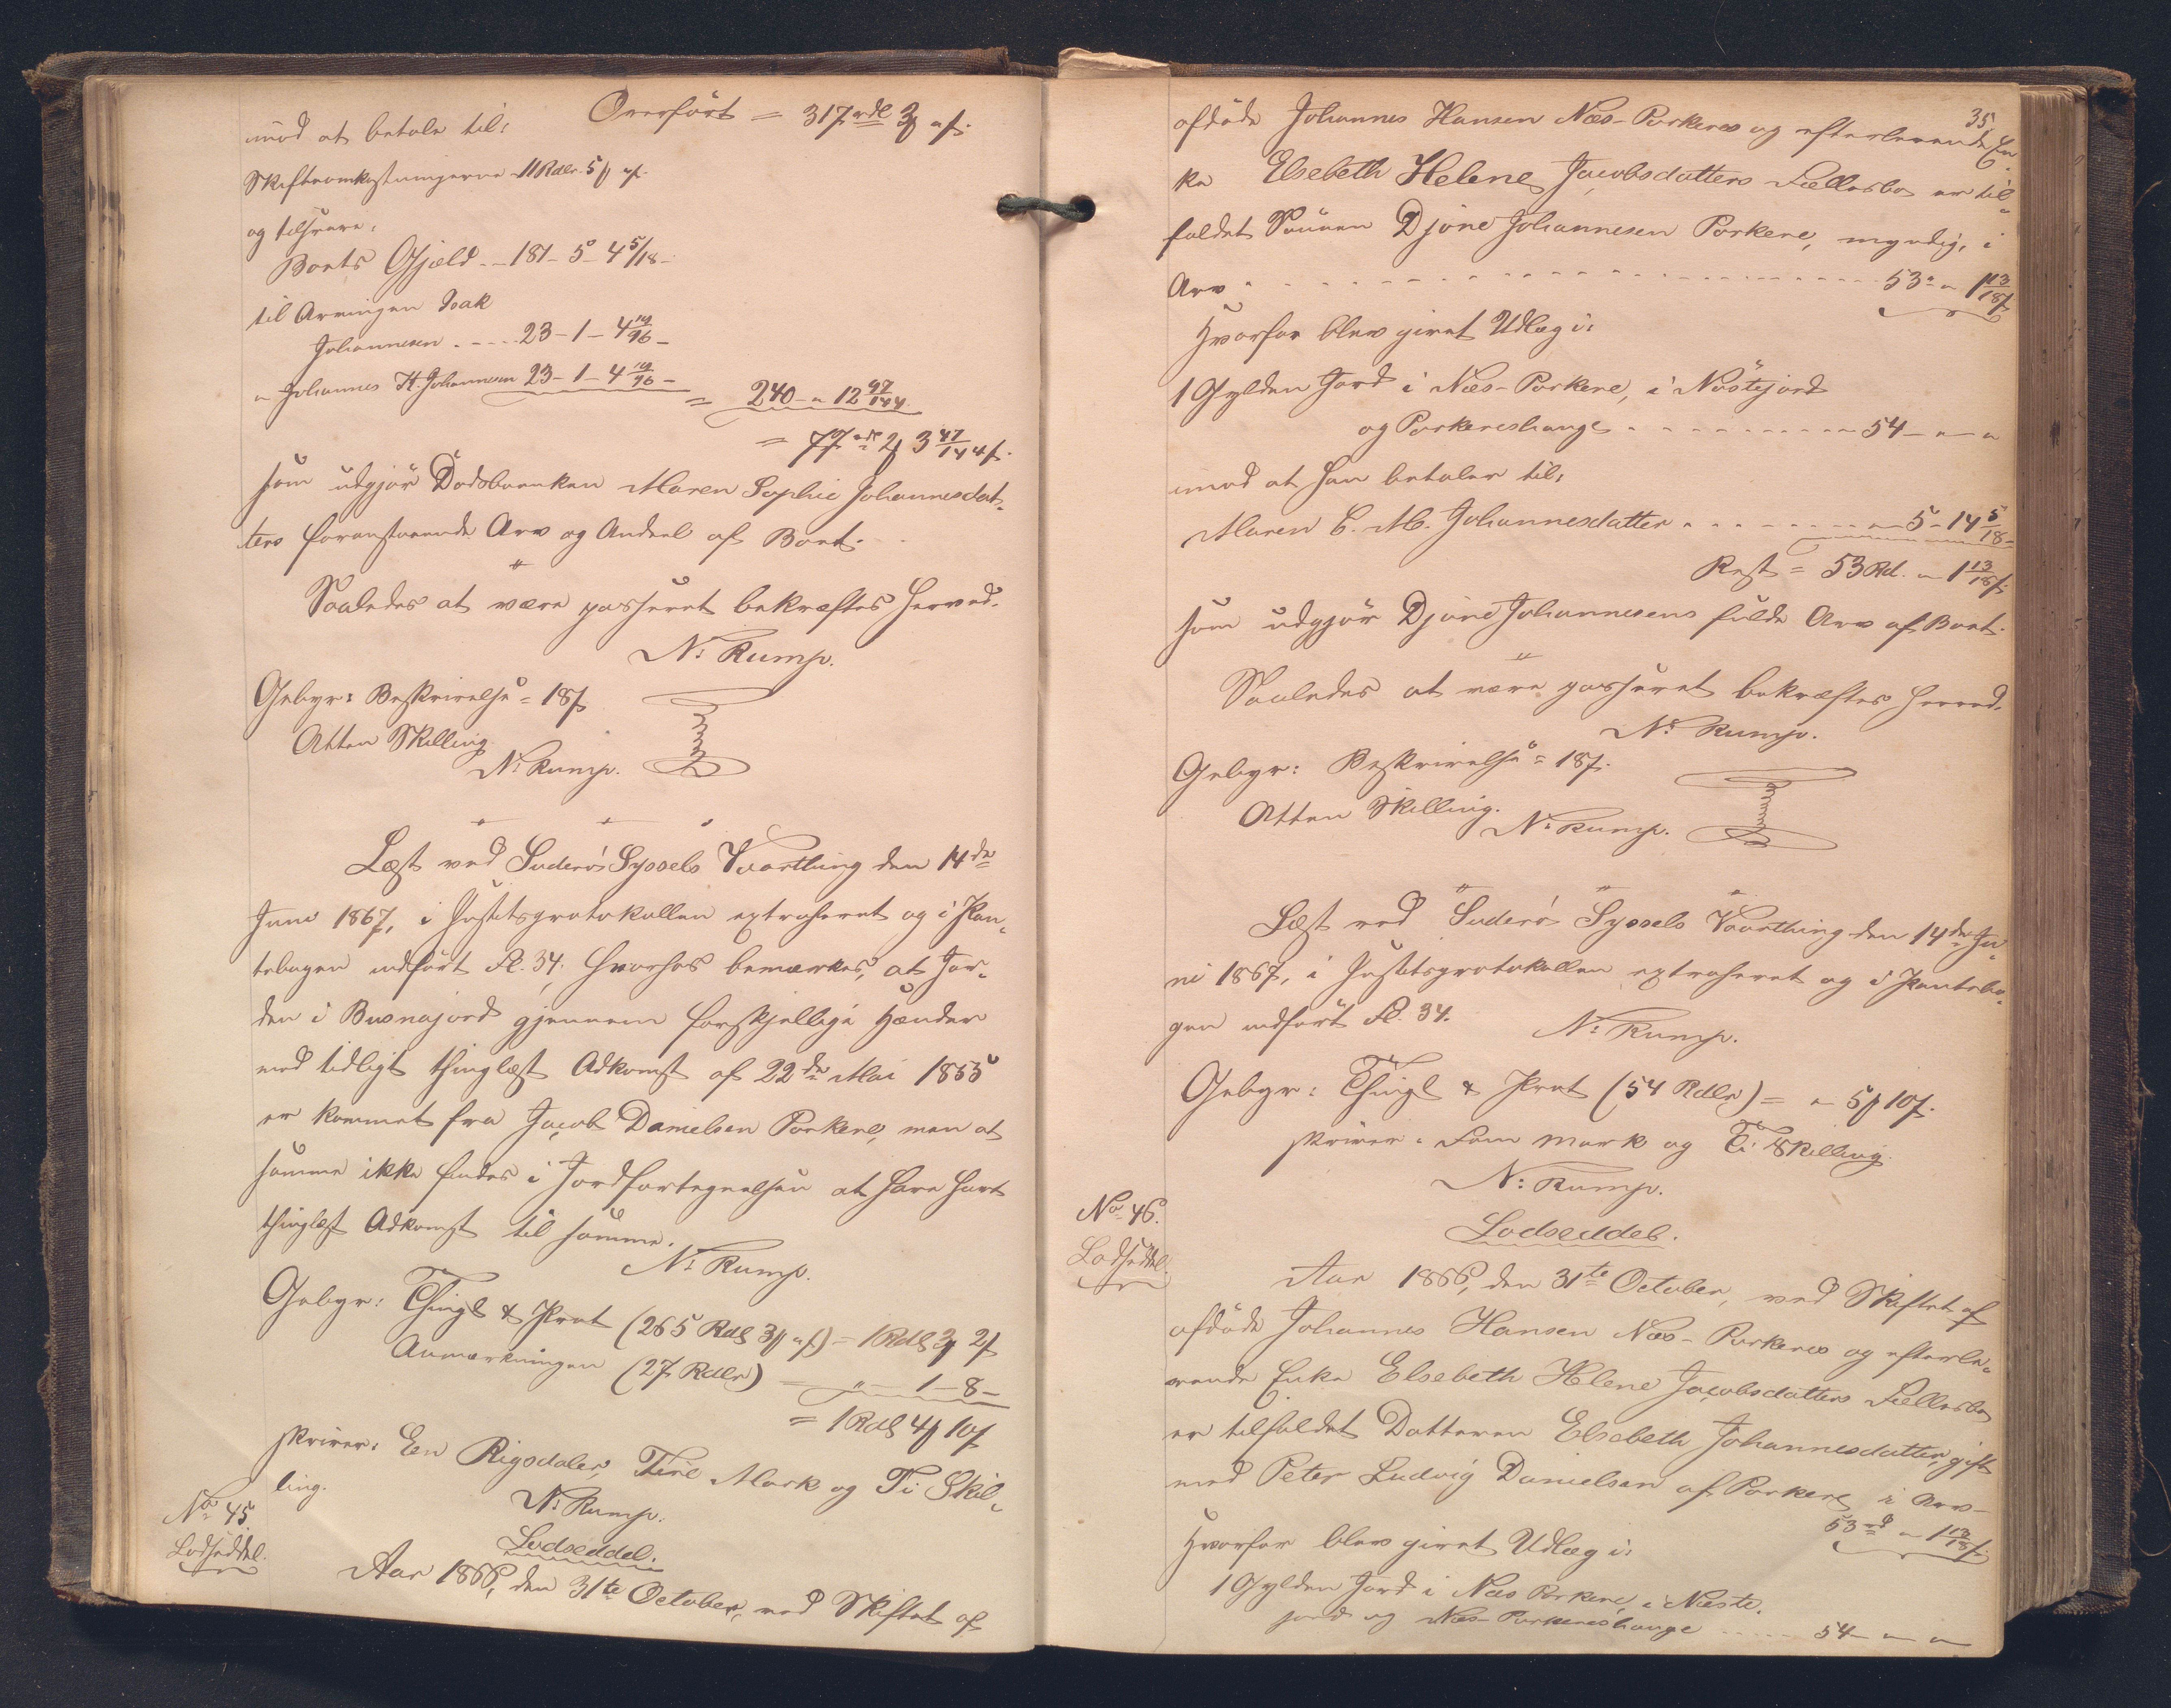 Overført = 317 rdl 3 ₰ " f.
imod at betale til:
Skifteomkostningerne 11 Rdlr. 5 ₰ " f.
og tilsvare:
Boets Gjæld - - 181 - 5 - 4 5/18 -
til Arvingen Isak
Johannesen - - - - 23 - 1 - 4 19/96 -
" Johannes H. Johannesen 23 - 1 - 4 19/96 -
= 240 - " 12 97/144
= 77 rd 2 ₰ 3 47/144 f.
som udgjør Dødsboenken Maren Sophie Johannesdat-
ters foranstaaende Arv og Andeel af Boet.
Saaledes at være passeret bekræftes herved.
N: Rump.
Gebyr: Beskrivelse = 18 f
Atten Skilling
N: Rump.
Læst ved Suderö Syssels Vaarthing den 14de
Juni 1867, i Justitsprotokollen extraheret og i Pan-
tebogen indført Fl. 34; hvorhos bemærkes, at Jor-
den i Busnajord gjennem forskjellige Hænder
med tidligt thinglæst Adkomst af 22de Mai 1855
er kommet fra Jacob Danielsen Porkere, men at
samme ikke findes i Jordfortegnelsen at have havt
thinglæst Adkomst til samme.
N: Rump.
Gebyr: Thingl & Prot (265 Rdl 3 ₰ " f) = 1 Rdl 3 ₰ 2 f
Anmærkningen (27 Rdlr) = " - 1 - 8 -
= 1 Rdl 4 ₰ 10 f
skriver: Een Rigsdaler, Fire Mark og Ti Skil-
ling.
N: Rump.
No 45.
Lodseddel.
Lodseddel.
Aar 1866, den 31te October, ved Skiftet af
35.
afdøde Johannes Hansen Næs-Porkeres og efterlevende En-
ke Elsebeth Helene Jacobsdatters Fællesbo er til-
faldet Sönnen Djóne Johannesen Porkere, myndig, i
Arv - - - - 53 " " 1 13/18 f
Hvorfor blev givet Udlæg i:
1 Gylden Jord i Næs-Porkere, i Nöstejord
og Porkereshauge - - - - 54 - " - "
imod at han betaler til:
Maren C. M. Johannesdatter - - - - " 5 - 14 5/18 -
Rest = 53 Rd. " 1 13/18 f.
som udgjør Djóne Johannesens fulde Arv af Boet.
Saaledes at være passeret bekræftes herved.
N: Rump.
Gebyr: Beskrivelse = 18 f.
Atten Skilling.
N: Rump.
Læst ved Suderö Syssels Vaarthing den 14de Ju-
ni 1867, i Justitsprotokollen extraheret og i Pantebo-
gen indført Fl. 34.
N: Rump.
Gebyr: Thingl & Prot (54 Rdlr) = " 5 ₰ 10 f.
skriver: Fem Mark og Ti Skilling.
N: Rump.
No 46.
Lodseddel.
Lodseddel.
Aar 1866, den 31te October, ved Skiftet af
afdøde Johannes Hansen Næs-Porkeres og efterle-
vende Enke Elsebeth Helene Jacobsdatters Fællesbo
er tilfaldet Datteren Elsebeth Johannesdatter, gift
med Peter Ludvig Danielsen af Porkere, i Arv -
53 rd " 1 13/18 f.
Hvorfor blev givet Udlæg i:
1 Gylden Jord i Næs Porkere, i Næste-
jord og Næs-Porkereshauge - - - - 54 - " - "